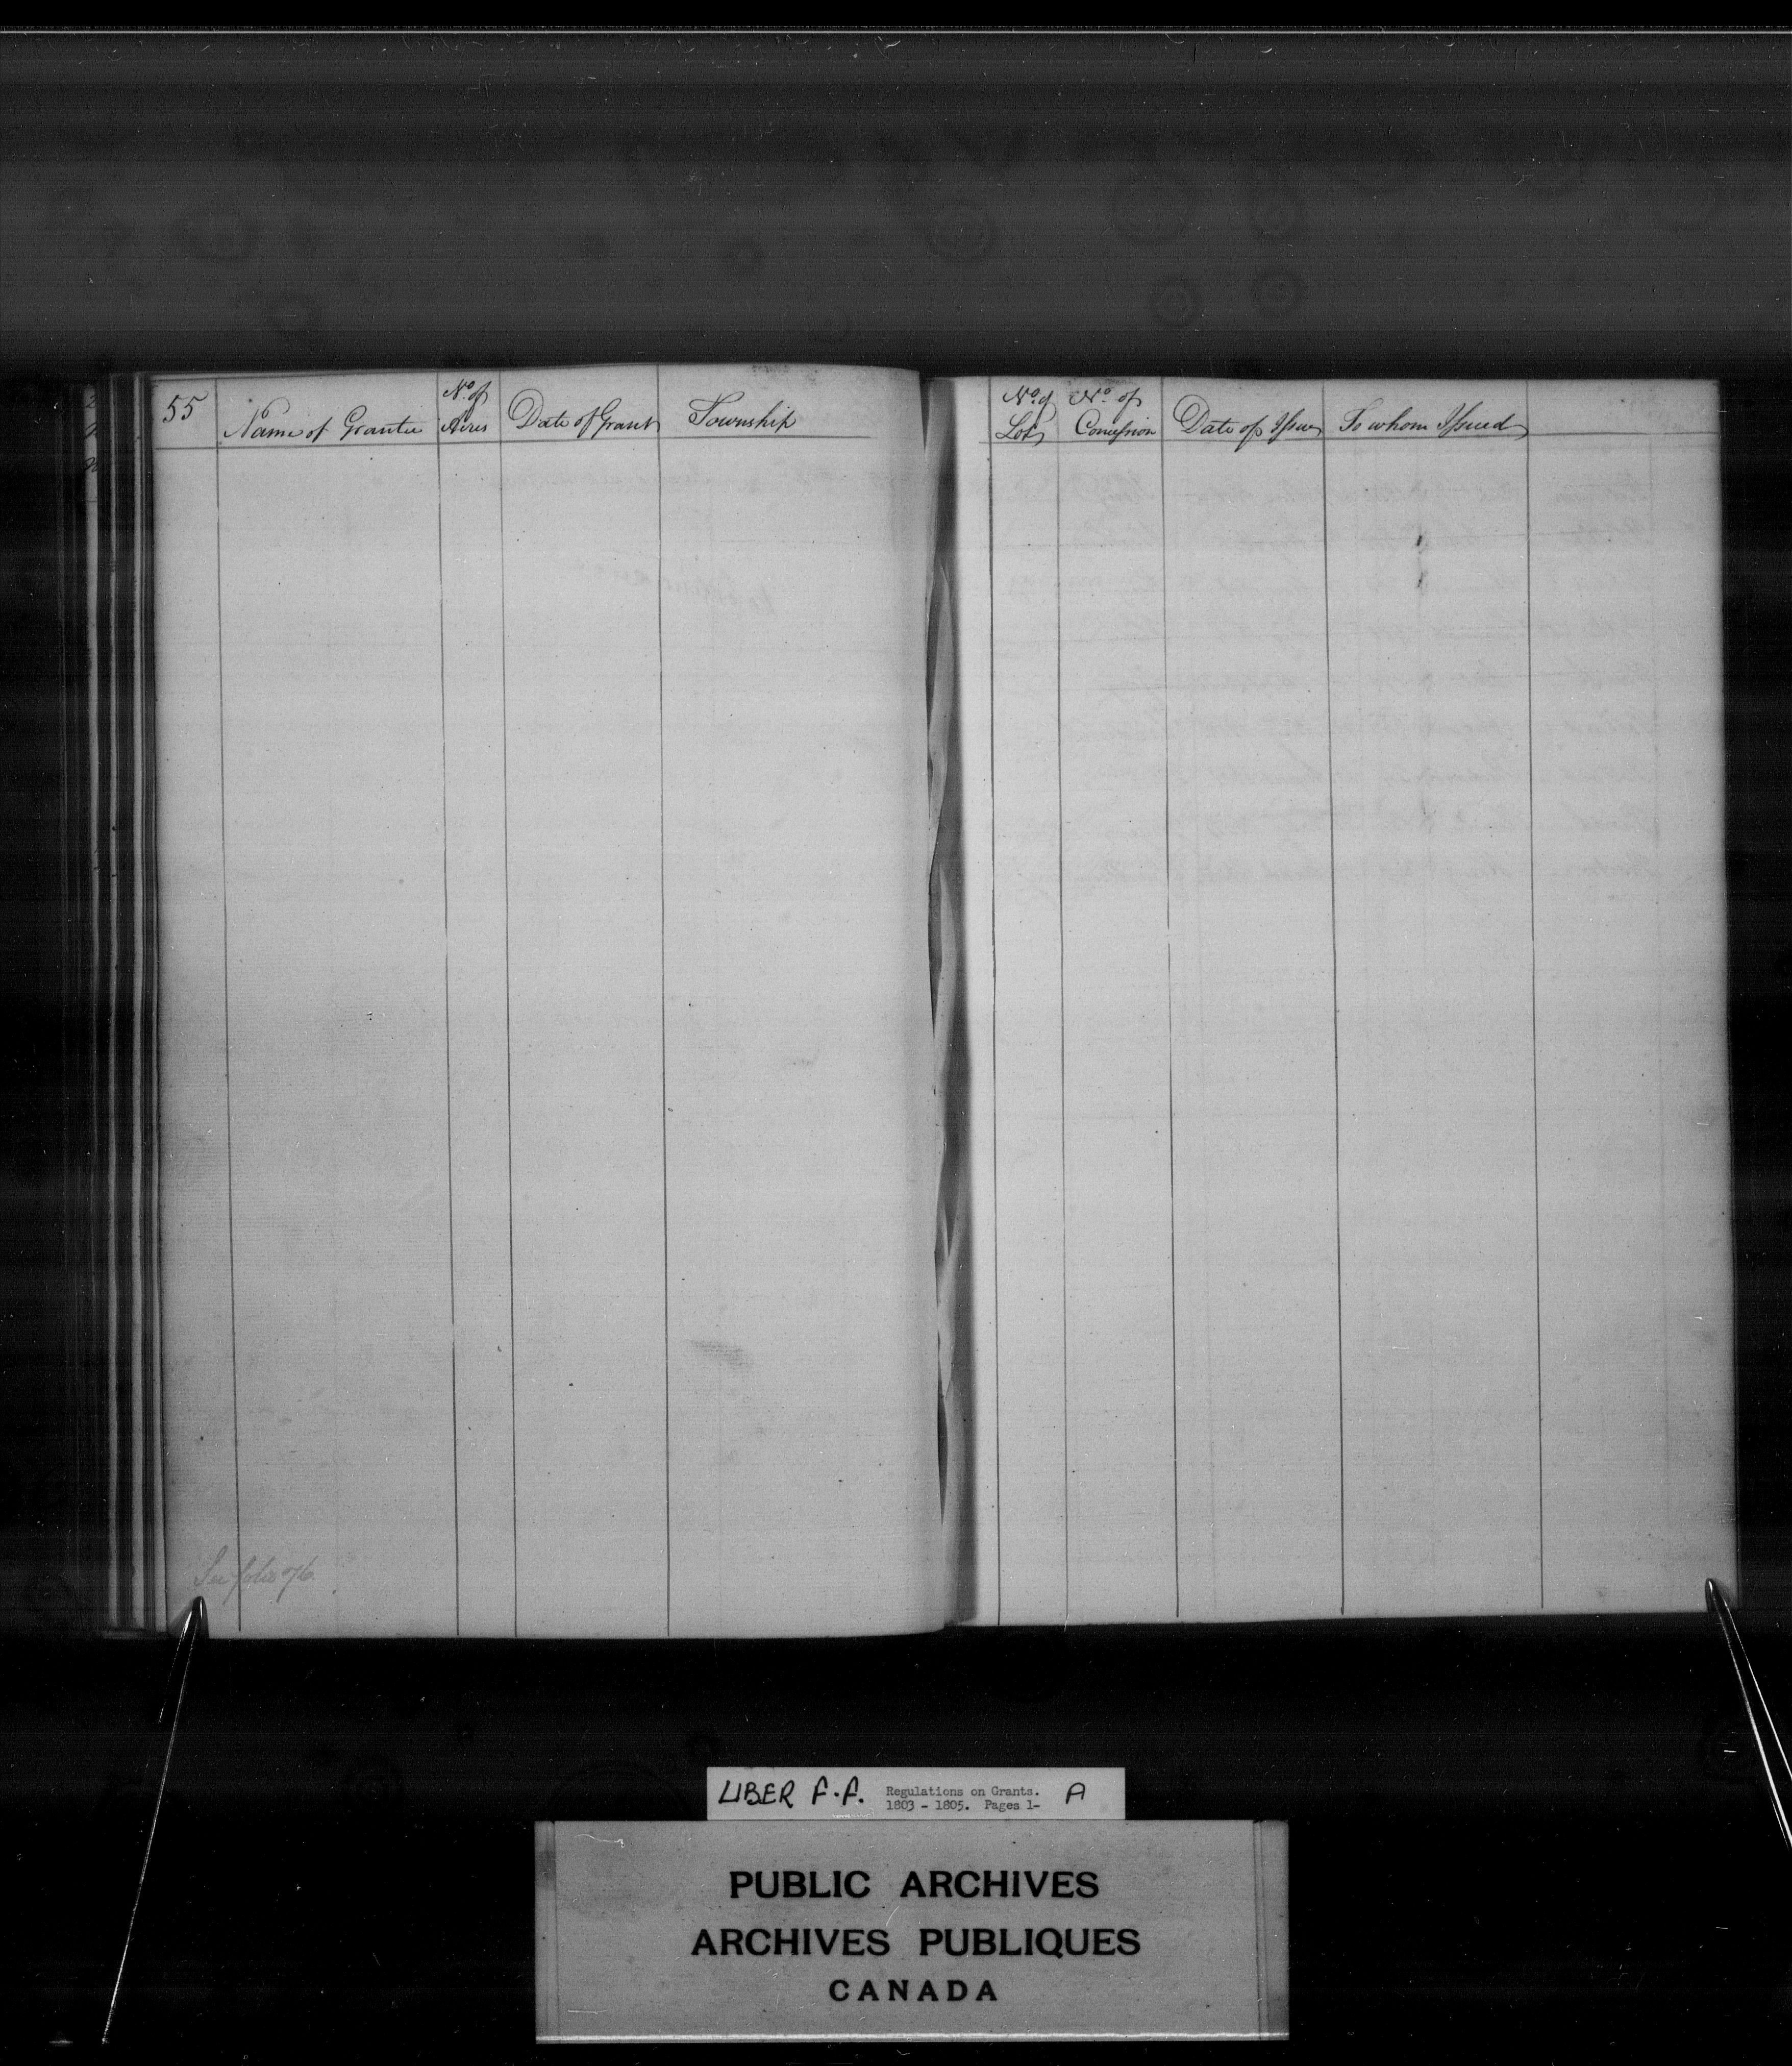 55
Name of Grantee
No. of
Acres
Date of Grant
Township
No. of
Lot
No. of
Concession
Date of Issue
To whom Issued
See folio 76.
LIBER F.F. Regulations on Grants.
1803 - 1805. Pages 1-
A
PUBLIC ARCHIVES
ARCHIVES PUBLIQUES
CANADA